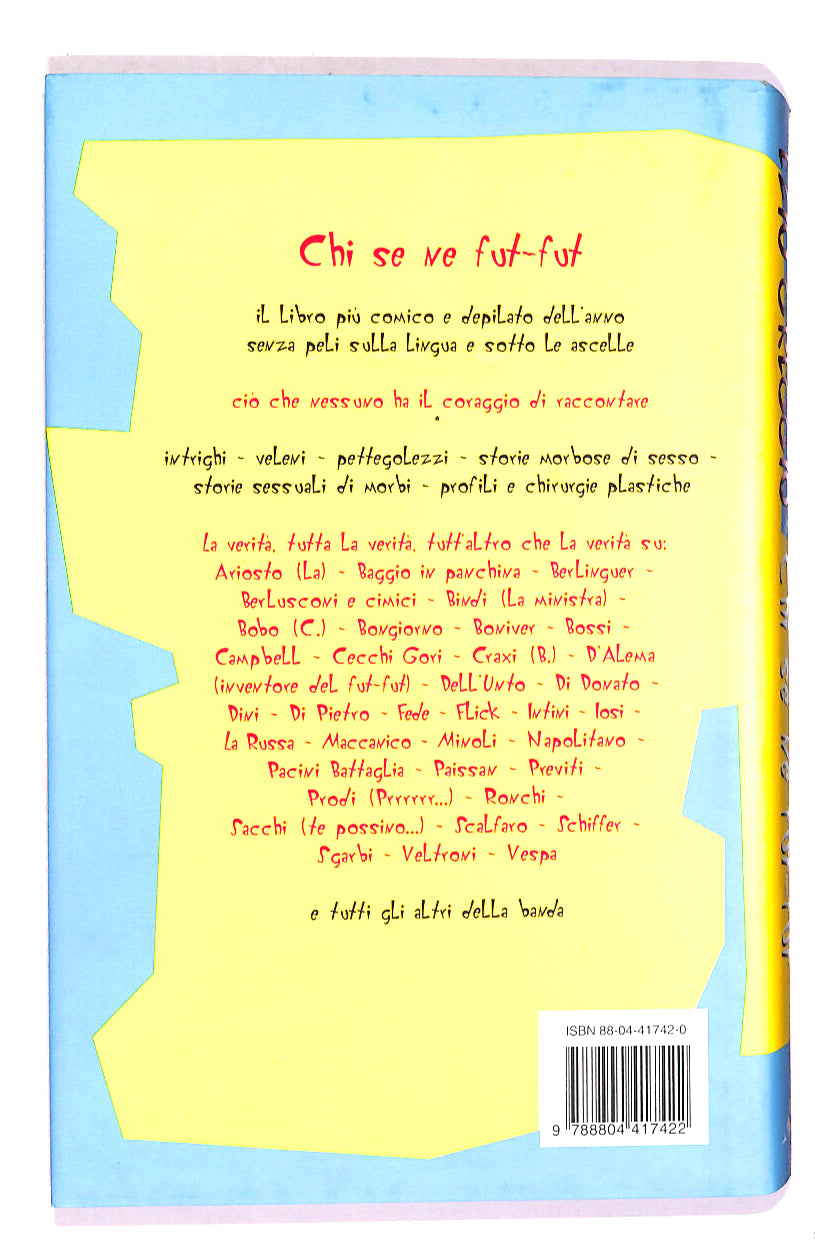 Chi se ne fut-fut
il libro più comico e depilato dell'anno
senza peli sulla lingua e sotto le ascelle
ciò che nessuno ha il coraggio di raccontare
intrighi - veleni - pettegolezzi - storie morbose di sesso -
storie sessuali di morbi - profili e chirurgie plastiche
La verità, tutta la verità, tutt'altro che la verità su:
Ariosto (La) - Baggio in panchina - Berlinguer -
Berlusconi e cimici - Bindi (La ministra) -
Bobo (C.) - Bongiorno - Boniver - Bossi -
Campbell - Cecchi Gori - Craxi (B.) - D'Alema
(inventore del fut-fut) - Dell'Unto - Di Donato -
Dini - Di Pietro - Fede - Flick - Intini - Iosi -
La Russa - Maccanico - Minoli - Napolitano -
Pacini Battaglia - Paissan - Previti -
Prodi (Prrrrrr...) - Ronchi -
Sacchi (te possino...) - Scalfaro - Schiffer -
Sgarbi - Veltroni - Vespa
e tutti gli altri della banda
ISBN 88-04-41742-0
9 788804 417422